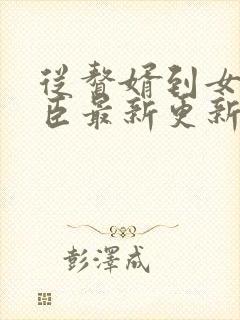 從贅婿到女
臣最新更新
彭澤成